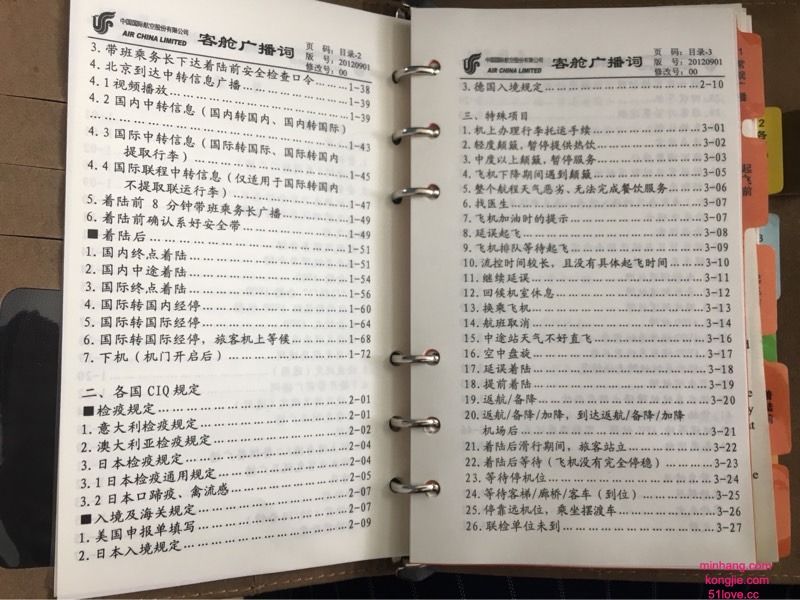 中国国际航空股份有限公司
AIR CHINA LIMITED
客舱广播词
页 码: 目录-2
版 号: 20120901
修改号: 00
3. 带班乘务长下达着陆前安全检查口令……1-38
4. 北京到达中转信息广播……1-39
4.1 视频播放……1-39
4.2 国内中转信息（国内转国内、国内转国际）
……1-43
4.3 国际中转信息（国际转国际、国际转国内
提取行李）……1-45
4.4 国际联程中转信息（仅适用于国际转国内
不提取联运行李）……1-47
5. 着陆前 8 分钟带班乘务长广播……1-49
6. 着陆前确认系好安全带……1-49
■着陆后……1-51
1. 国内终点着陆……1-51
2. 国内中途着陆……1-54
3. 国际终点着陆……1-56
4. 国际转国内经停……1-60
5. 国际转国际经停……1-64
6. 国际转国际经停，旅客机上等候……1-68
7. 下机（机门开启后）……1-72
二、各国 CIQ 规定
■检疫规定……2-01
1. 意大利检疫规定……2-01
2. 澳大利亚检疫规定……2-02
3. 日本检疫规定……2-04
3.1 日本检疫通用规定……2-04
3.2 日本口蹄疫、禽流感……2-05
■入境及海关规定……2-07
1. 美国申报单填写……2-07
2. 日本入境规定……2-09
中国国际航空股份有限公司
AIR CHINA LIMITED
客舱广播词
页 码: 目录-3
版 号: 20120901
修改号: 00
3. 德国入境规定……2-10
三、特殊项目
1. 机上办理行李托运手续……3-01
2. 轻度颠簸, 暂停提供热饮……3-02
3. 中度以上颠簸, 暂停服务……3-03
4. 飞机下降期间遇到颠簸……3-05
5. 整个航程天气恶劣, 无法完成餐饮服务……3-06
6. 找医生……3-07
7. 飞机加油时的提示……3-07
8. 延误起飞……3-08
9. 飞机排队等待起飞……3-09
10. 流控时间较长，且没有具体起飞时间……3-10
11. 继续延误……3-11
12. 回候机室休息……3-12
13. 换乘飞机……3-13
14. 航班取消……3-14
15. 中途站天气不好直飞……3-16
16. 空中盘旋……3-17
17. 延误着陆……3-18
18. 提前着陆……3-19
19. 返航/备降……3-20
20. 返航/备降/加降，到达返航/备降/加降
机场后……3-21
21. 着陆后滑行期间，旅客站立……3-22
22. 着陆后等待（飞机没有完全停稳）……3-23
23. 等待停机位……3-24
24. 等待客梯/廊桥/客车（到位）……3-25
25. 停靠远机位，乘坐摆渡车……3-26
26. 联检单位未到……3-27
起飞前
minhang.com
kongjie.com
51love.cc